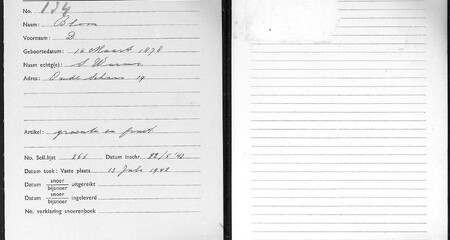 No. 134
Naam: Bloom
Voornaam: D
Geboortedatum: 16 Maart 1878
Naam echtg(e): S
Adres: Oude Schans 14
Artikel: groente en fruit
No. Soll.lijst 266 Datum inschr. 22/8'41
Datum toek: Vaste plaats 13 Juli 1942
Datum snoer uitgereikt
bijsnoer
Datum snoer ingeleverd
bijsnoer
No. verklaring snoerenboek